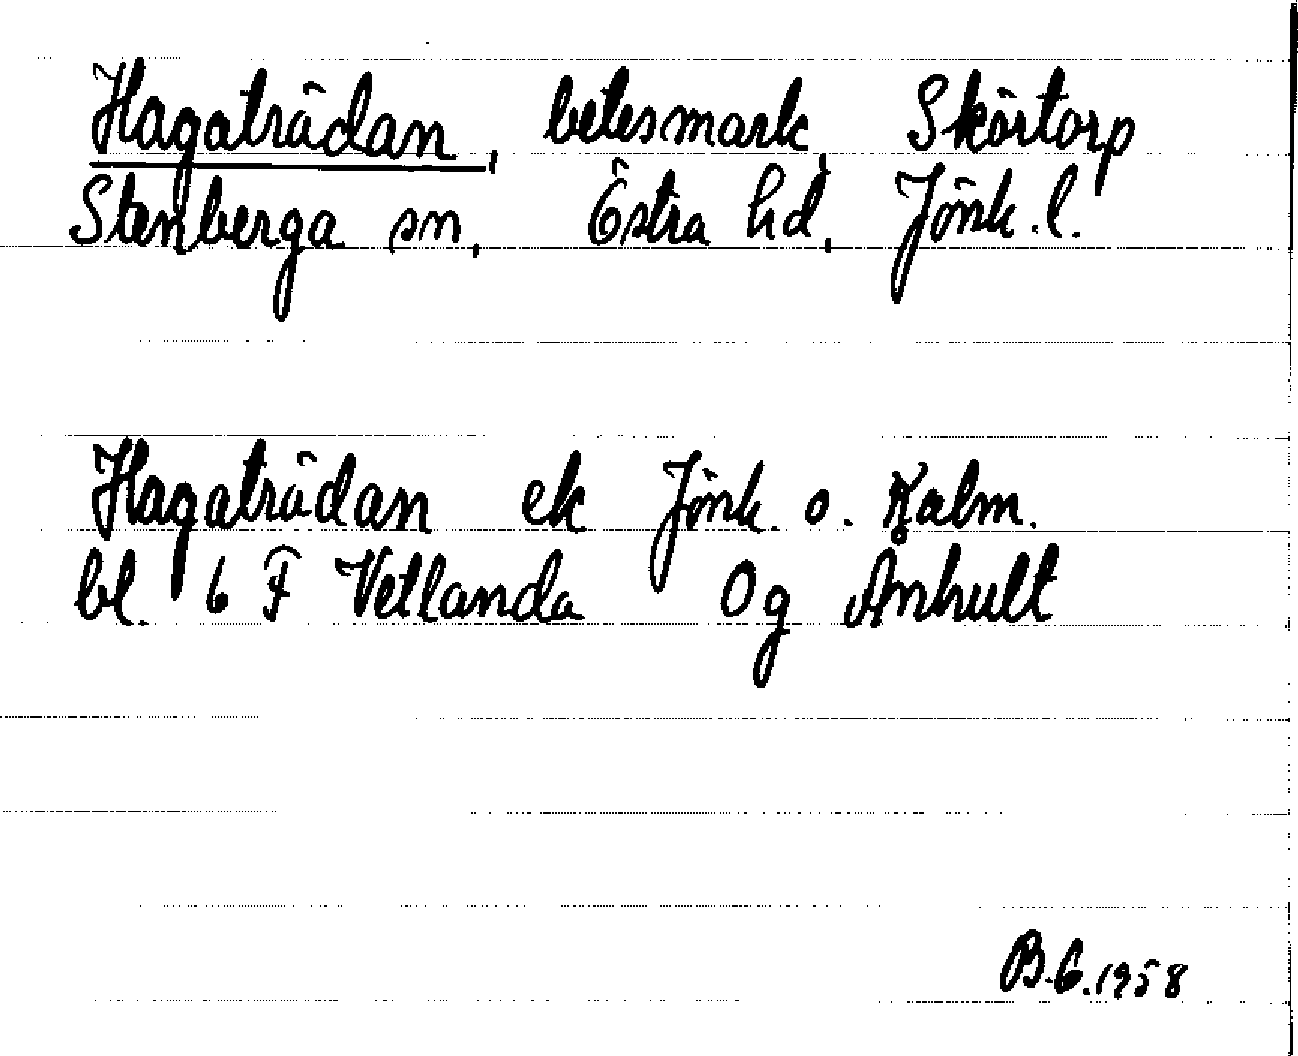 Hagaträdan, betesmark, Skörtorp
Stenberga sn, Östra hd, Jönk.l.
Hagaträdan ek Jönk. o. Kalm.
bl. 6 F Vetlanda Og Ånhult
B.G.1958